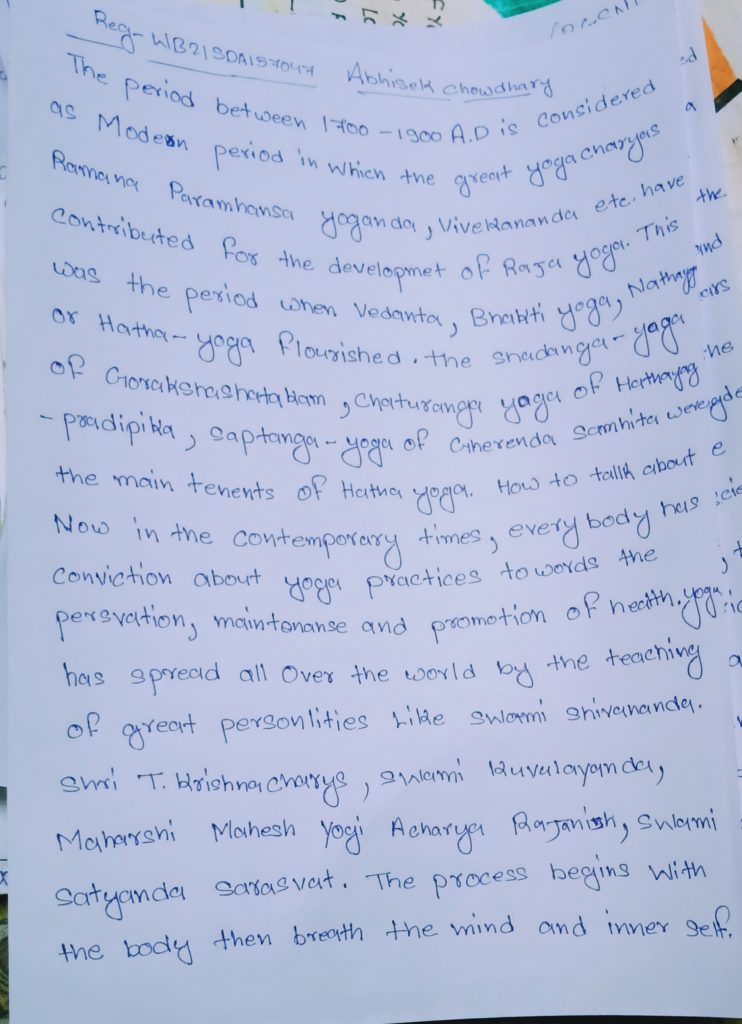 Reg- WB21SDA157047 Abhisek Chowdhary
The period between 1700 - 1900 A.D is considered
as Modern period in which the great yogacharyas
Ramana Paramhansa yoganda, Vivekananda etc. have
contributed for the developmet of Raja yoga. This
was the period when Vedanta, Bhakti yoga, Nathayg
or Hatha - yoga flourished. the shadanga - yoga
of Gorakshashatakam, Chaturanga yoga of Harthayag
- pradipika, saptanga - yoga of Gherenda Samhita were
the main tenents of Hatha yoga. How to tallk about
Now in the contemporary times, every body has
conviction about yoga practices towords the
persvation, maintenanse and promotion of health. yoga
has spread all over the world by the teaching
of great personlities Like swami shivananda.
Shri T. Krishnacharys, swami Kuvalayanda,
Maharshi Mahesh Yogi Acharya Rajanish, Swami
Satyanda Sarasvat. The process begins with
the body then breath the mind and inner self.